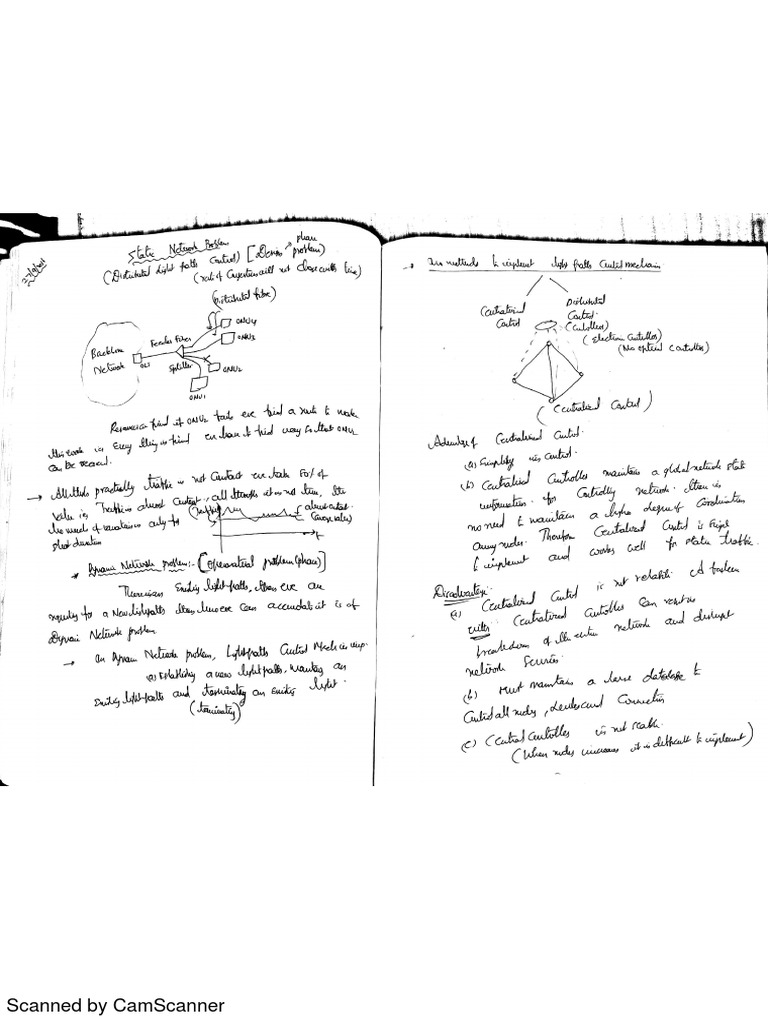 Static Network Problem
phase
(Distributed light paths Control) [Design problem]
(rate of Connection will not change with time)
(Distributed fibre)
ONU4
ONU3
Feeder Fiber
Backbone
Network
OLT
Splitter
ONU2
ONU1
if ONU2 fails we find a route to make
this work in every thing is find we have to find way so that ONU2
can be reached.
→ All though practically traffic is not Constant we take 50% of
value is Traffic is almost Constant, all though it is not true, the
amount of variation is only for
short duration
(Traffic)
(almost constant
(average value)
t
* Dynamic Network problem:- [Operational problem (phase)]
There is an Existing light-paths, when we are
for a New light paths then how we can accomodate it is of
Dynamic Network problem
→ In Dynamic Network problem, Light paths Control Mechanism
is Establishing a new light paths, maintaing an
Existing light-paths and terminating an Existing light.
(terminating)
→ Two methods to implement light paths Control mechanism
Centralized
Control
Distributed
Control
(Controllers)
(Electronic Controllers)
(No optical Controllers)
(Centralized Control)
Advantage of Centralized Control:
(a) Simplicity in Control.
(b) Centralized Controller maintains a global network state
information for Controlling network. There is
no need to maintain a higher degree of Coordination
among nodes. Therefore Centralized Control is Simple
to implement and works well for static traffic.
Disadvantages:
(a) Centralized Control is not reliable. A broken
Centralized Controller can result in
breakdown of the entire network and disrupt
network Services.
(b) Must maintain a large database to
Control all nodes, Links and Connection
(c) Central Controller is not scalable.
(When nodes increases it is difficult to implement)
Scanned by CamScanner